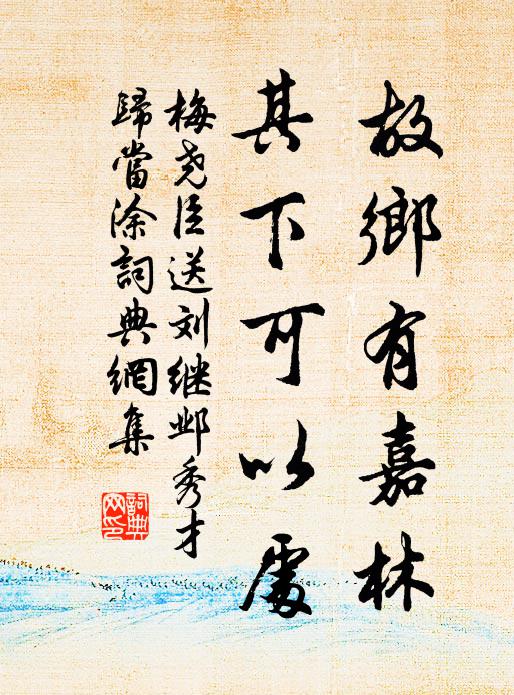 故鄉有嘉林
其下可以處
梅尧臣送刘继邺秀才
歸當涂詞典網集
詞典网印